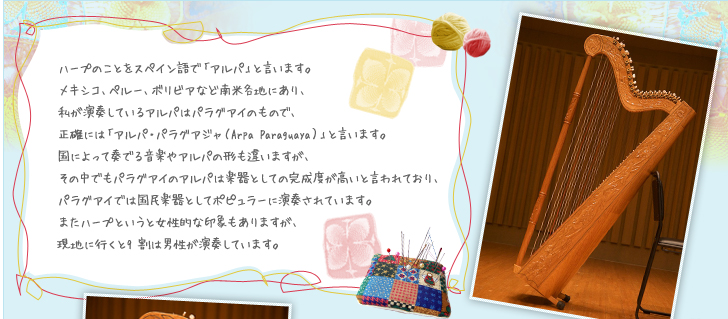 ハープのことをスペイン語で「アルパ」と言います。
メキシコ、ペルー、ボリビアなど南米各地にあり、
私が演奏しているアルパはパラグアイのもので、
正確には「アルパ・パラグアジャ(Arpa Paraguaya)」と言います。
国によって奏でる音楽やアルパの形も違いますが、
その中でもパラグアイのアルパは楽器としての完成度が高いと言われており、
パラグアイでは国民楽器としてポピュラーに演奏されています。
またハープというと女性的な印象もありますが、
現地に行くと9割は男性が演奏しています。